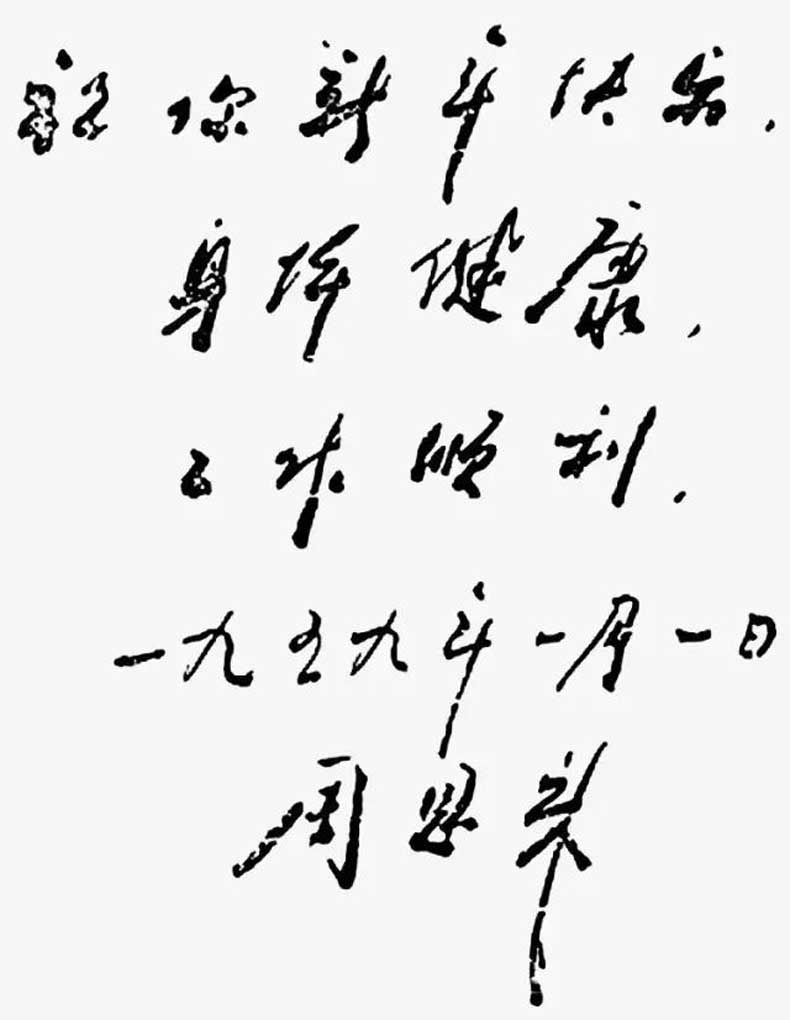 祝你新年快乐，
身体健康，
工作顺利，
一九五九年一月一日
周恩来